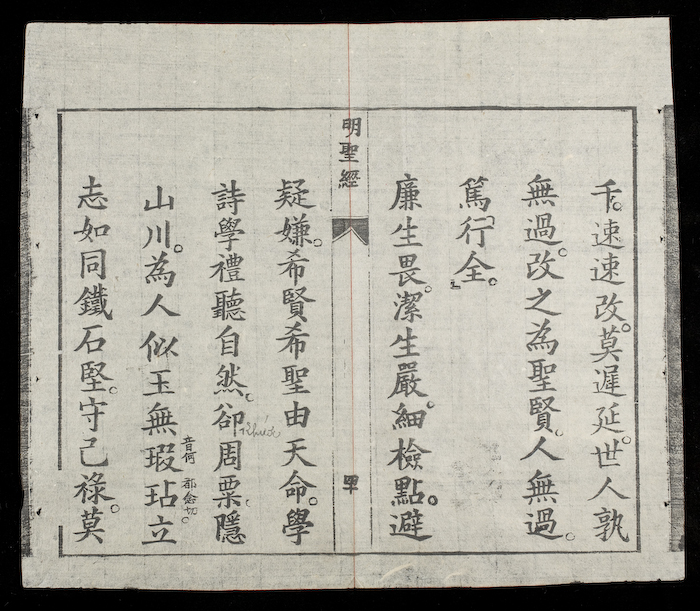 千。速速改。莫遲延。世人孰
無過。改之為聖賢。人無過。
篤行全。
明聖經
四十
廉生畏。潔生嚴。細檢點。避
疑嫌。希賢希聖由天命。學
詩學禮聽自然。卻周粟。隱
khước
山川。為人似玉無瑕玷立
音何 都念切。
志如同鐵石堅。守己祿。莫